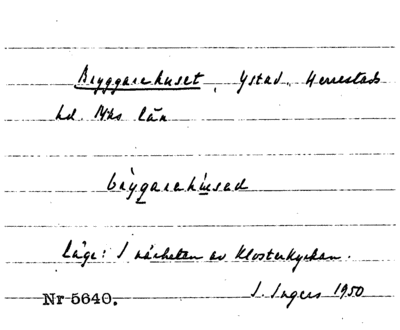 Bryggarehuset, Ystad, Herrestads
hd. Mhs län
brygarehusad
Läge: I närheten av Klosterkyrkan.
Nr 5640. I. Ingers 1950